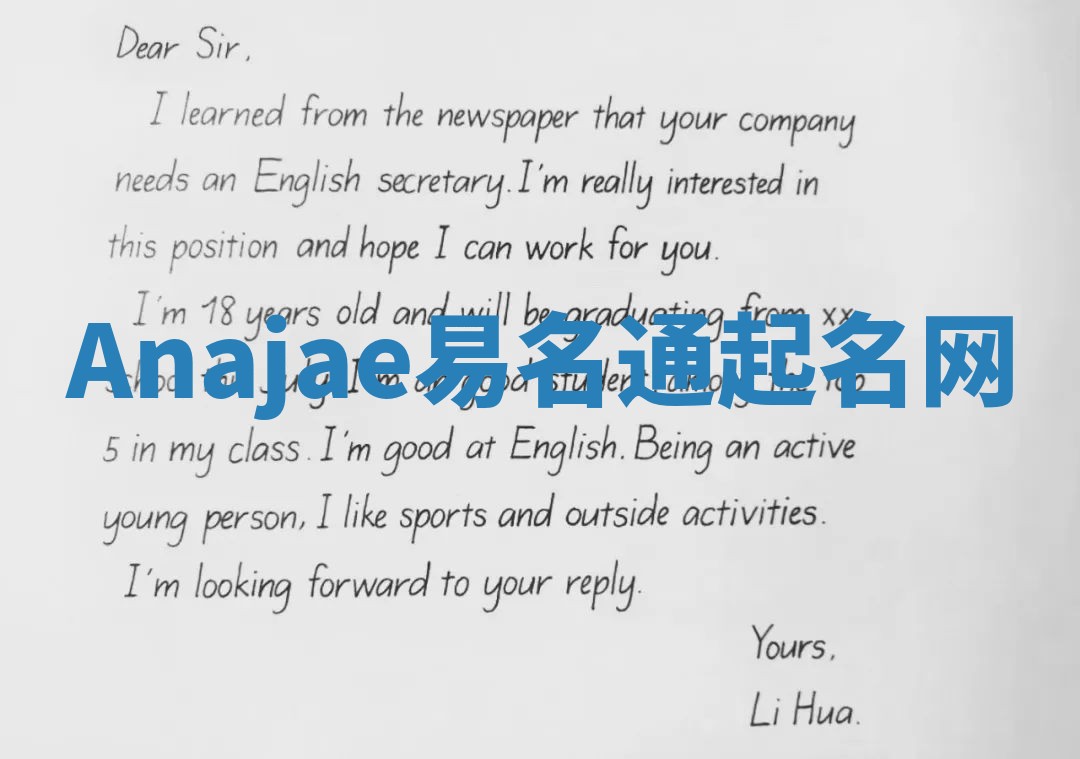 Dear Sir,
I learned from the newspaper that your company
needs an English secretary. I'm really interested in
this position and hope I can work for you.
I'm 18 years old and will be graduating from xx
Anajae易名通起名网
school this July. I'm a good student, among the top
5 in my class. I'm good at English. Being an active
young person, I like sports and outside activities.
I'm looking forward to your reply.
Yours,
Li Hua.